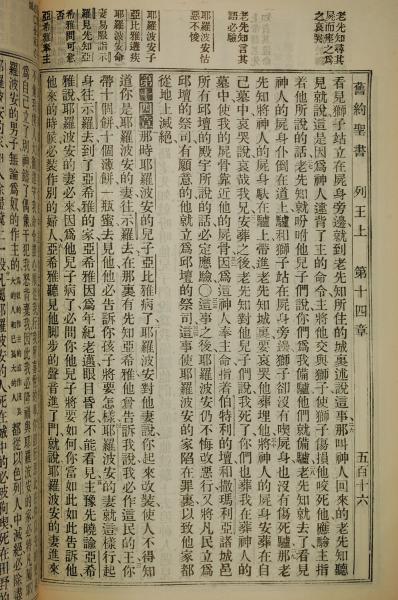 舊約聖書 列王上 第十四章 五百十六
老先知尋其
屍而瘞之爲
之哀哭
老先知言其
語必驗
耶羅波安怙
惡不悛
耶羅波安子
亞比雅遘疾
耶羅波安命
妻易服詣示
羅見先知亞
希雅問可愈
否
亞希雅奉主
看見獅子站立在屍身旁邊就到老先知所住的城裏述說這事那叫神人回來的老先知聽
見就說這是因爲神人違背了主的命令主將他交與獅子使獅子傷損他咬死他應驗主指
着他所說的話老先知就吩咐他兒子們說你們爲我備驢他們就備驢老先知就去了看見
神人的屍身仆倒在道上驢和獅子站在屍身旁獅子卻沒有喫屍身也沒有傷死驢那老
先知將神人的屍身馱在驢上帶進老先知城裏要哀哭他葬埋他將神人的屍身安葬在自
己墓中哀哭說哀哉我兄安葬之後老先知對他兒子們說我死了你們也葬我在葬神人的
墓中使我的屍骨靠近他的屍骨因爲這神人奉主命指着伯特利的壇和撒瑪利亞諸城邑
所有邱壇的殿宇所說的話必定應驗這事之後耶羅波安仍不悔改惡行又將凡民立爲
邱壇的祭司有願意的他就立爲邱壇的祭司這事使耶羅波安的家陷在罪裏以致他家都
從地上滅絕
第十四章 那時耶羅波安的兒子亞比雅病了耶羅波安對他妻說你起來改裝使人不得知
道你是耶羅波安的妻往示羅去在那裏有先知亞希雅他曾告訴我說我必作這民的王你
帶十個餅十個薄餅一瓶蜜去見他他必告訴你孩子將要怎樣耶羅波安的妻就這樣行起
身往示羅去到了亞希雅的家亞希雅因爲年紀老邁眼目昏花不能看見主豫先曉諭亞希
雅說耶羅波安的妻必來因爲他兒子病了必問你他兒子將要如何你當如此如此告訴他
他來的時候必裝作別的婦人亞希雅聽見他脚步的聲音進了門就說耶羅波安的妻進來